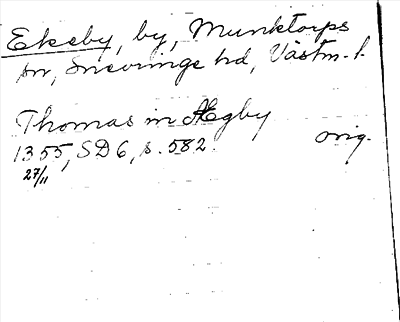 Ekeby, by, Munktorps
sn, Snevringe hd, Västm. l.
Thomas in Ægby
1355, SD 6, s. 582.
orig.
27/11